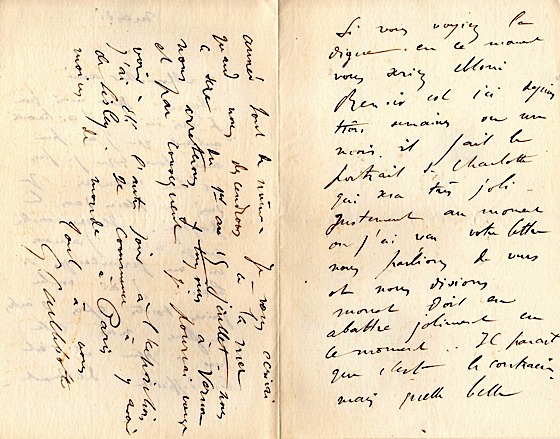 Si vous voyiez la
digue en ce moment
vous seriez ébloui
Renoir est ici depuis
trois semaines ou un
mois. il fait le
portrait de Charlotte
qui sera très joli -
justement au moment
où j'ai reçu votre lettre
nous parlions de vous
et nous disions
monet doit en
abattre joliment en
ce moment . Il parait
que c'est le contraire
mais quelle belle
année pour le
je vous écrirai
quand nous descendrons à la mer
ce sera du 1er au 15 juillet. nous
nous arrêterons toujours à Vernon
et par conséquent je pourrai vous
voir
J'ai été l'autre jour à l'exposition
de Sisley. De Commune il y avait
moins de monde à Paris
Tout à vous
G Caillebotte